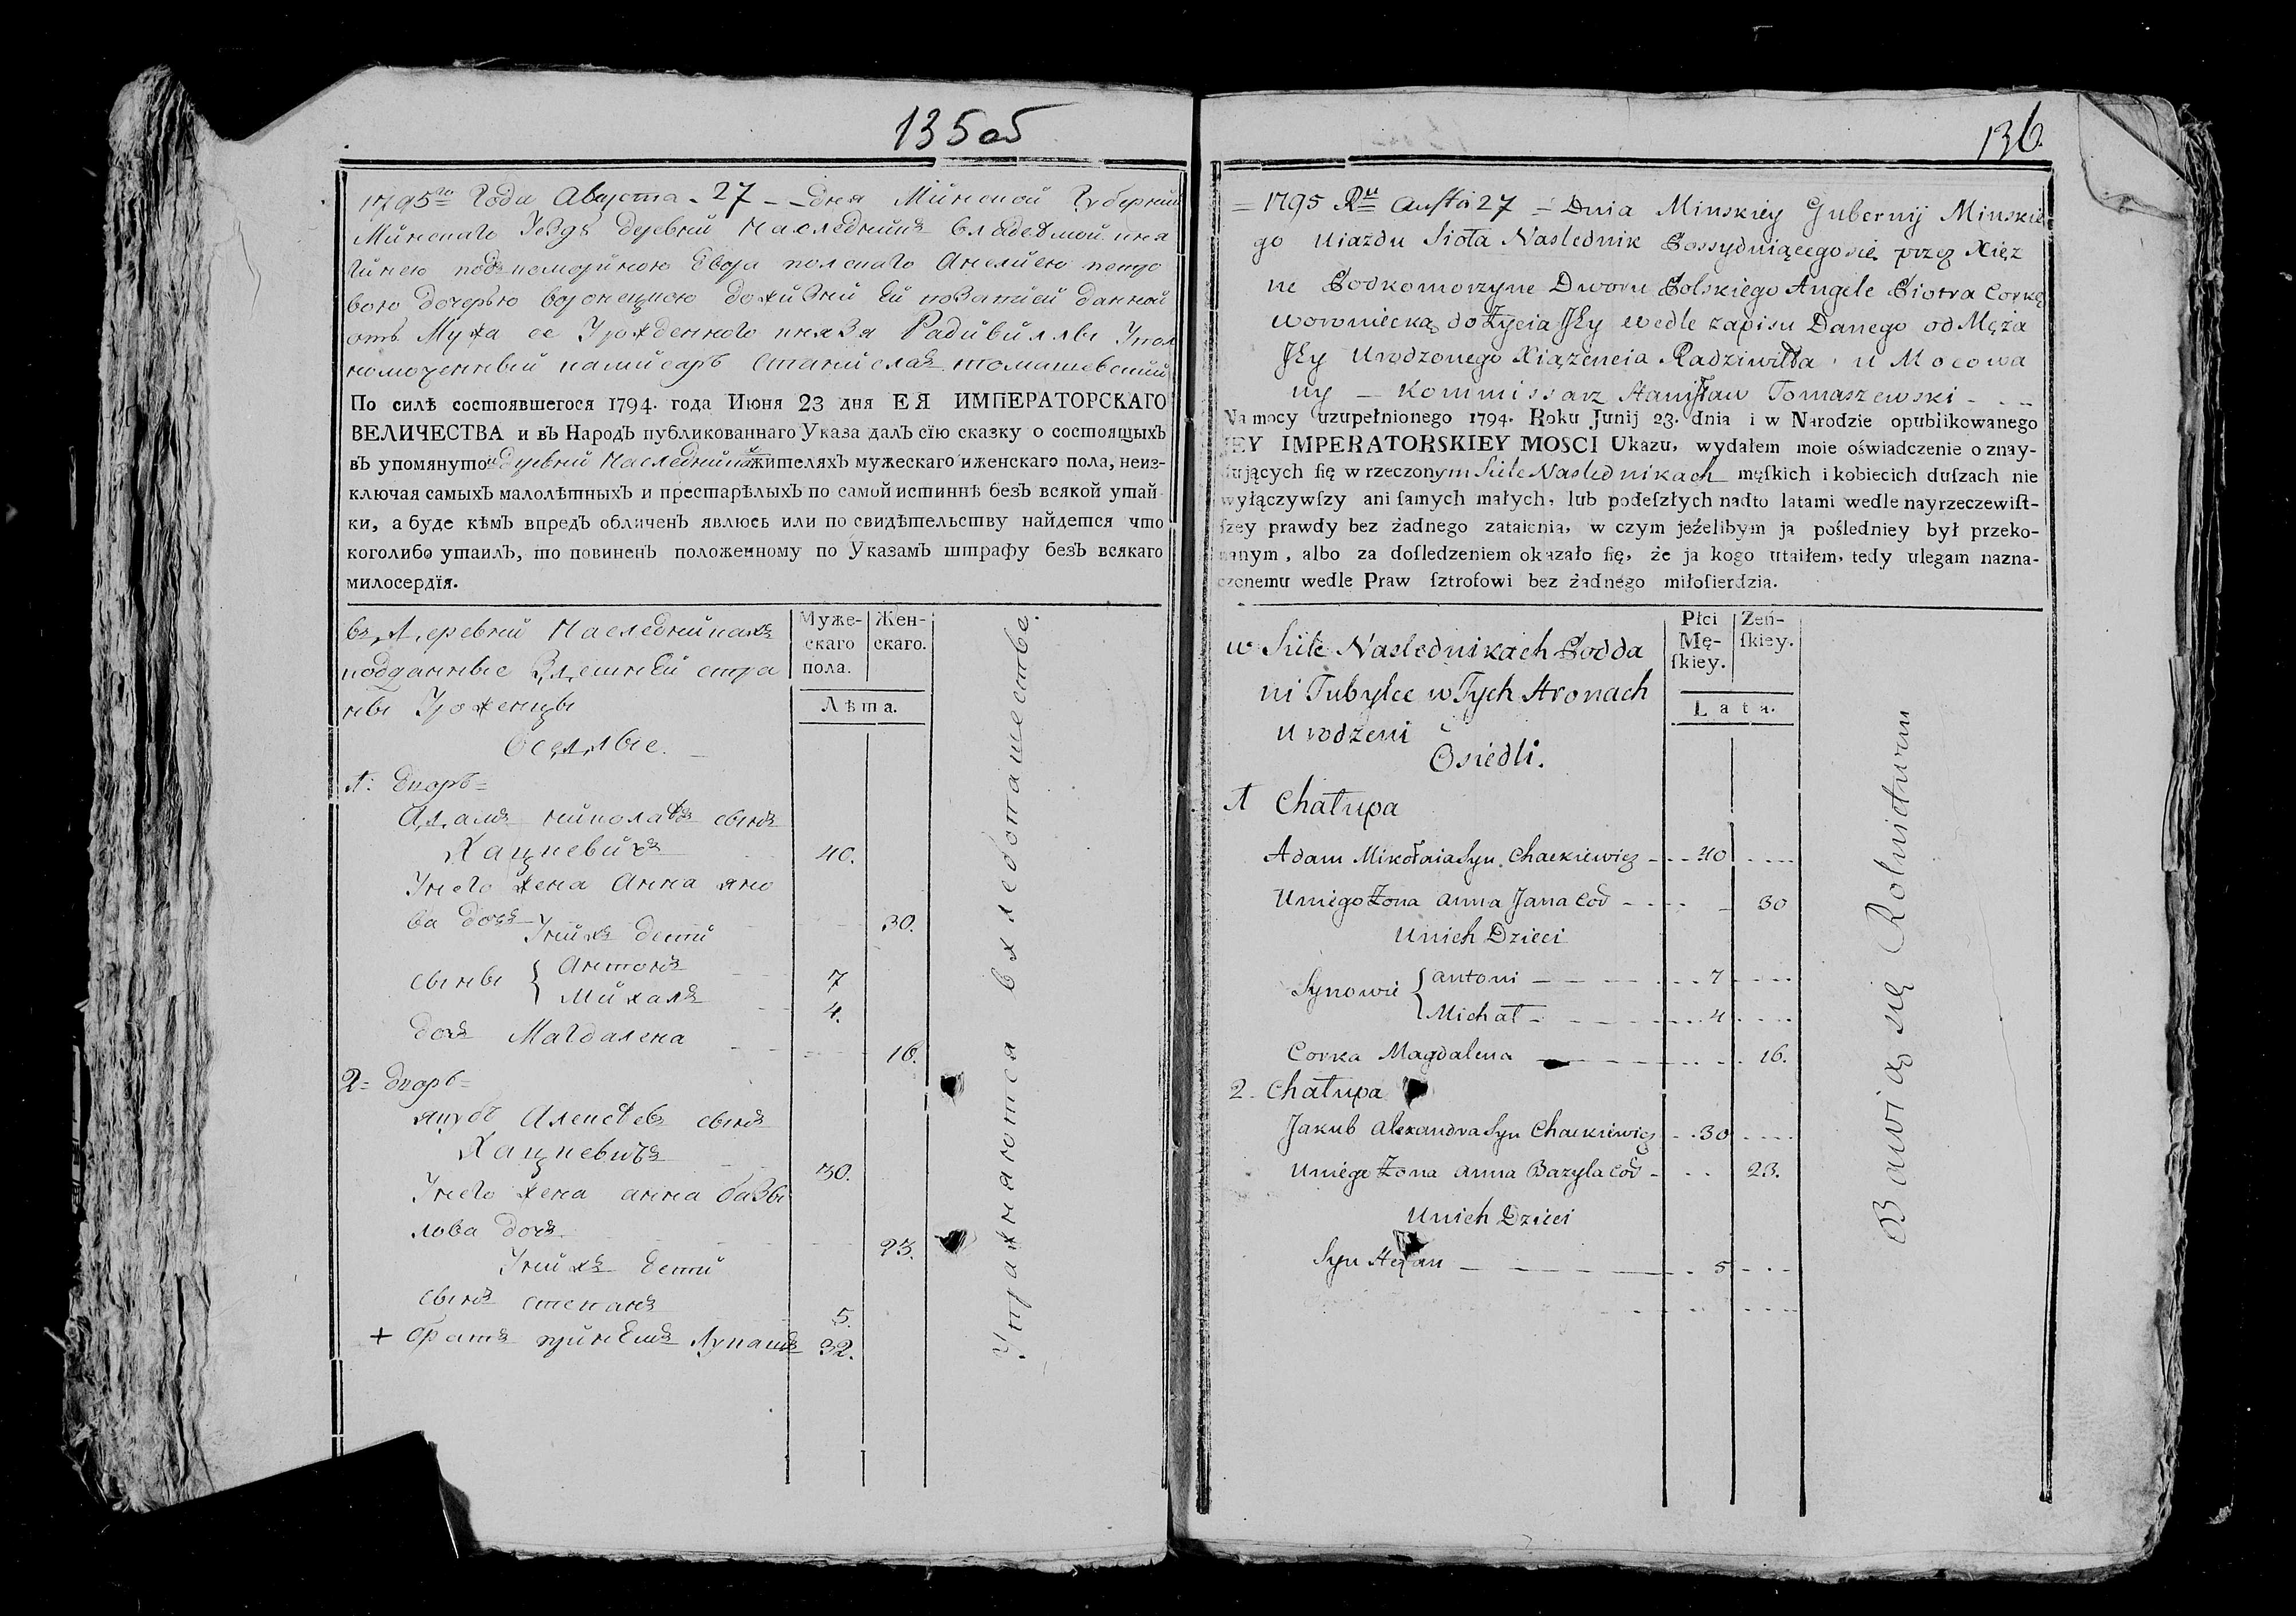 135об
1795го Года Августа - 27 - - Дня Минской Губернии
Минскаго Уезда деревни Наследникъ владѣемой кня
гинею подкомориною Двора полскаго Анелиею петро
вою дочерью воронецкою дожизни Ей по записи данной
отъ Мужа ее Урожденного князя Радивилла Упол
номоченный камисаръ Станиславъ томашевский
По силѣ состоявшегося 1794. года Июня 23 дня ЕЯ ИМПЕРАТОРСКАГО
ВЕЛИЧЕСТВА и въ Народъ публикованнаго Указа далъ сїю сказку о состоящыхъ
въ упомянутой деревни Наследникахъ жителяхъ мужескаго иженскаго пола, неиз-
ключая самыхъ малолѣтныхъ и престарѣлыхъ по самой истиннѣ безъ всякой утай
ки, а буде кѣмъ впредъ обличенъ явлюсь или по свидѣтельству найдется что
коголибо утаилъ, то повиненъ положенному по Указамъ штрафу безъ всякаго
милосердїя.
въ Деревни Наследникахъ
подданные Здешней стра
ны Уроженцы
Оседлые.
Муже-
скаго
пола.
Жен-
скаго.
Лѣта.
1: Дворъ=
Адамъ николаевъ сынъ
Хацкевичъ 40.
Унего жена Анна яно
ва дочь 30.
Унихъ дети
сыны { Антонъ 7
Михалъ 4.
дочь Магдалена 16.
2= Дворъ=
якубъ Алексеевъ сынъ
Хацкевичъ 30.
Унего жена анна базы
лова дочь 23.
Унихъ дети
сынъ степанъ 5.
+ братъ Лукашъ 32.
Упражняются вхлебопашестве.
136.
= 1795 Ru Austa 27 = Dnia Minskiey Gubernij Minskie
go Uiazdu Sioła Naslednik Possyduiącegosię przez Xięz
ne Podkomorzyne Dworu Polskiego Angele Piotra Corkę
woroniecką do Życia Jey wedle zapisu Danego od Męża
Jey Urodzonego Xiązencia Radziwiłła u Mocowa
ny - Kommissarz Stanisław Tomaszewski - - -
Na mocy uzupełnionego 1794. Roku Junij 23. dnia i w Narodzie opublikowanego
JEY IMPERATORSKIEY MOSCI Ukazu, wydałem moie oświadczenie o znay-
dujących ſię w rzeczonym Siele Naslednikach męſkich i kobiecich duſzach nie
wyłączywſzy ani ſamych małych, lub podeſzłych nadto latami wedle nayrzeczewiſt-
ſzey prawdy bez żadnego zataienia, w czym jeżelibym ja pośledniey był przeko-
nanym, albo za doſledzeniem okazało ſię, że ja kogo utaiłem, tedy ulegam nazna-
czonemu wedle Praw ſztrofowi bez żadnego miłoſierdzia.
w Siele Naslednikach Podda
ni Tubylce w Tych Stronach
urodzeni
Osiedli.
Płci
Mę-
ſkiey.
Zeń-
ſkiey.
Lata.
1 Chałupa
Adam Mikołaia Syn Chackiewicz - - - 40 - - - -
Uniego Żona Anna Jana Cor - - - - 30
Unich Dzieci
Synowie { Antoni - - - - - 7 - - - -
Michał - - - - - 4 - - - -
Corka Magdalena - - - - - 16.
2. Chałupa
Jakub Alexandra Syn Chackiewicz - - 30 - - - -
Uniego Żona Anna Bazyla Cor - - - 23.
Unich Dzieci
Syn Stefan - - - - - 5 - - -
Bawią się Rolnictwem